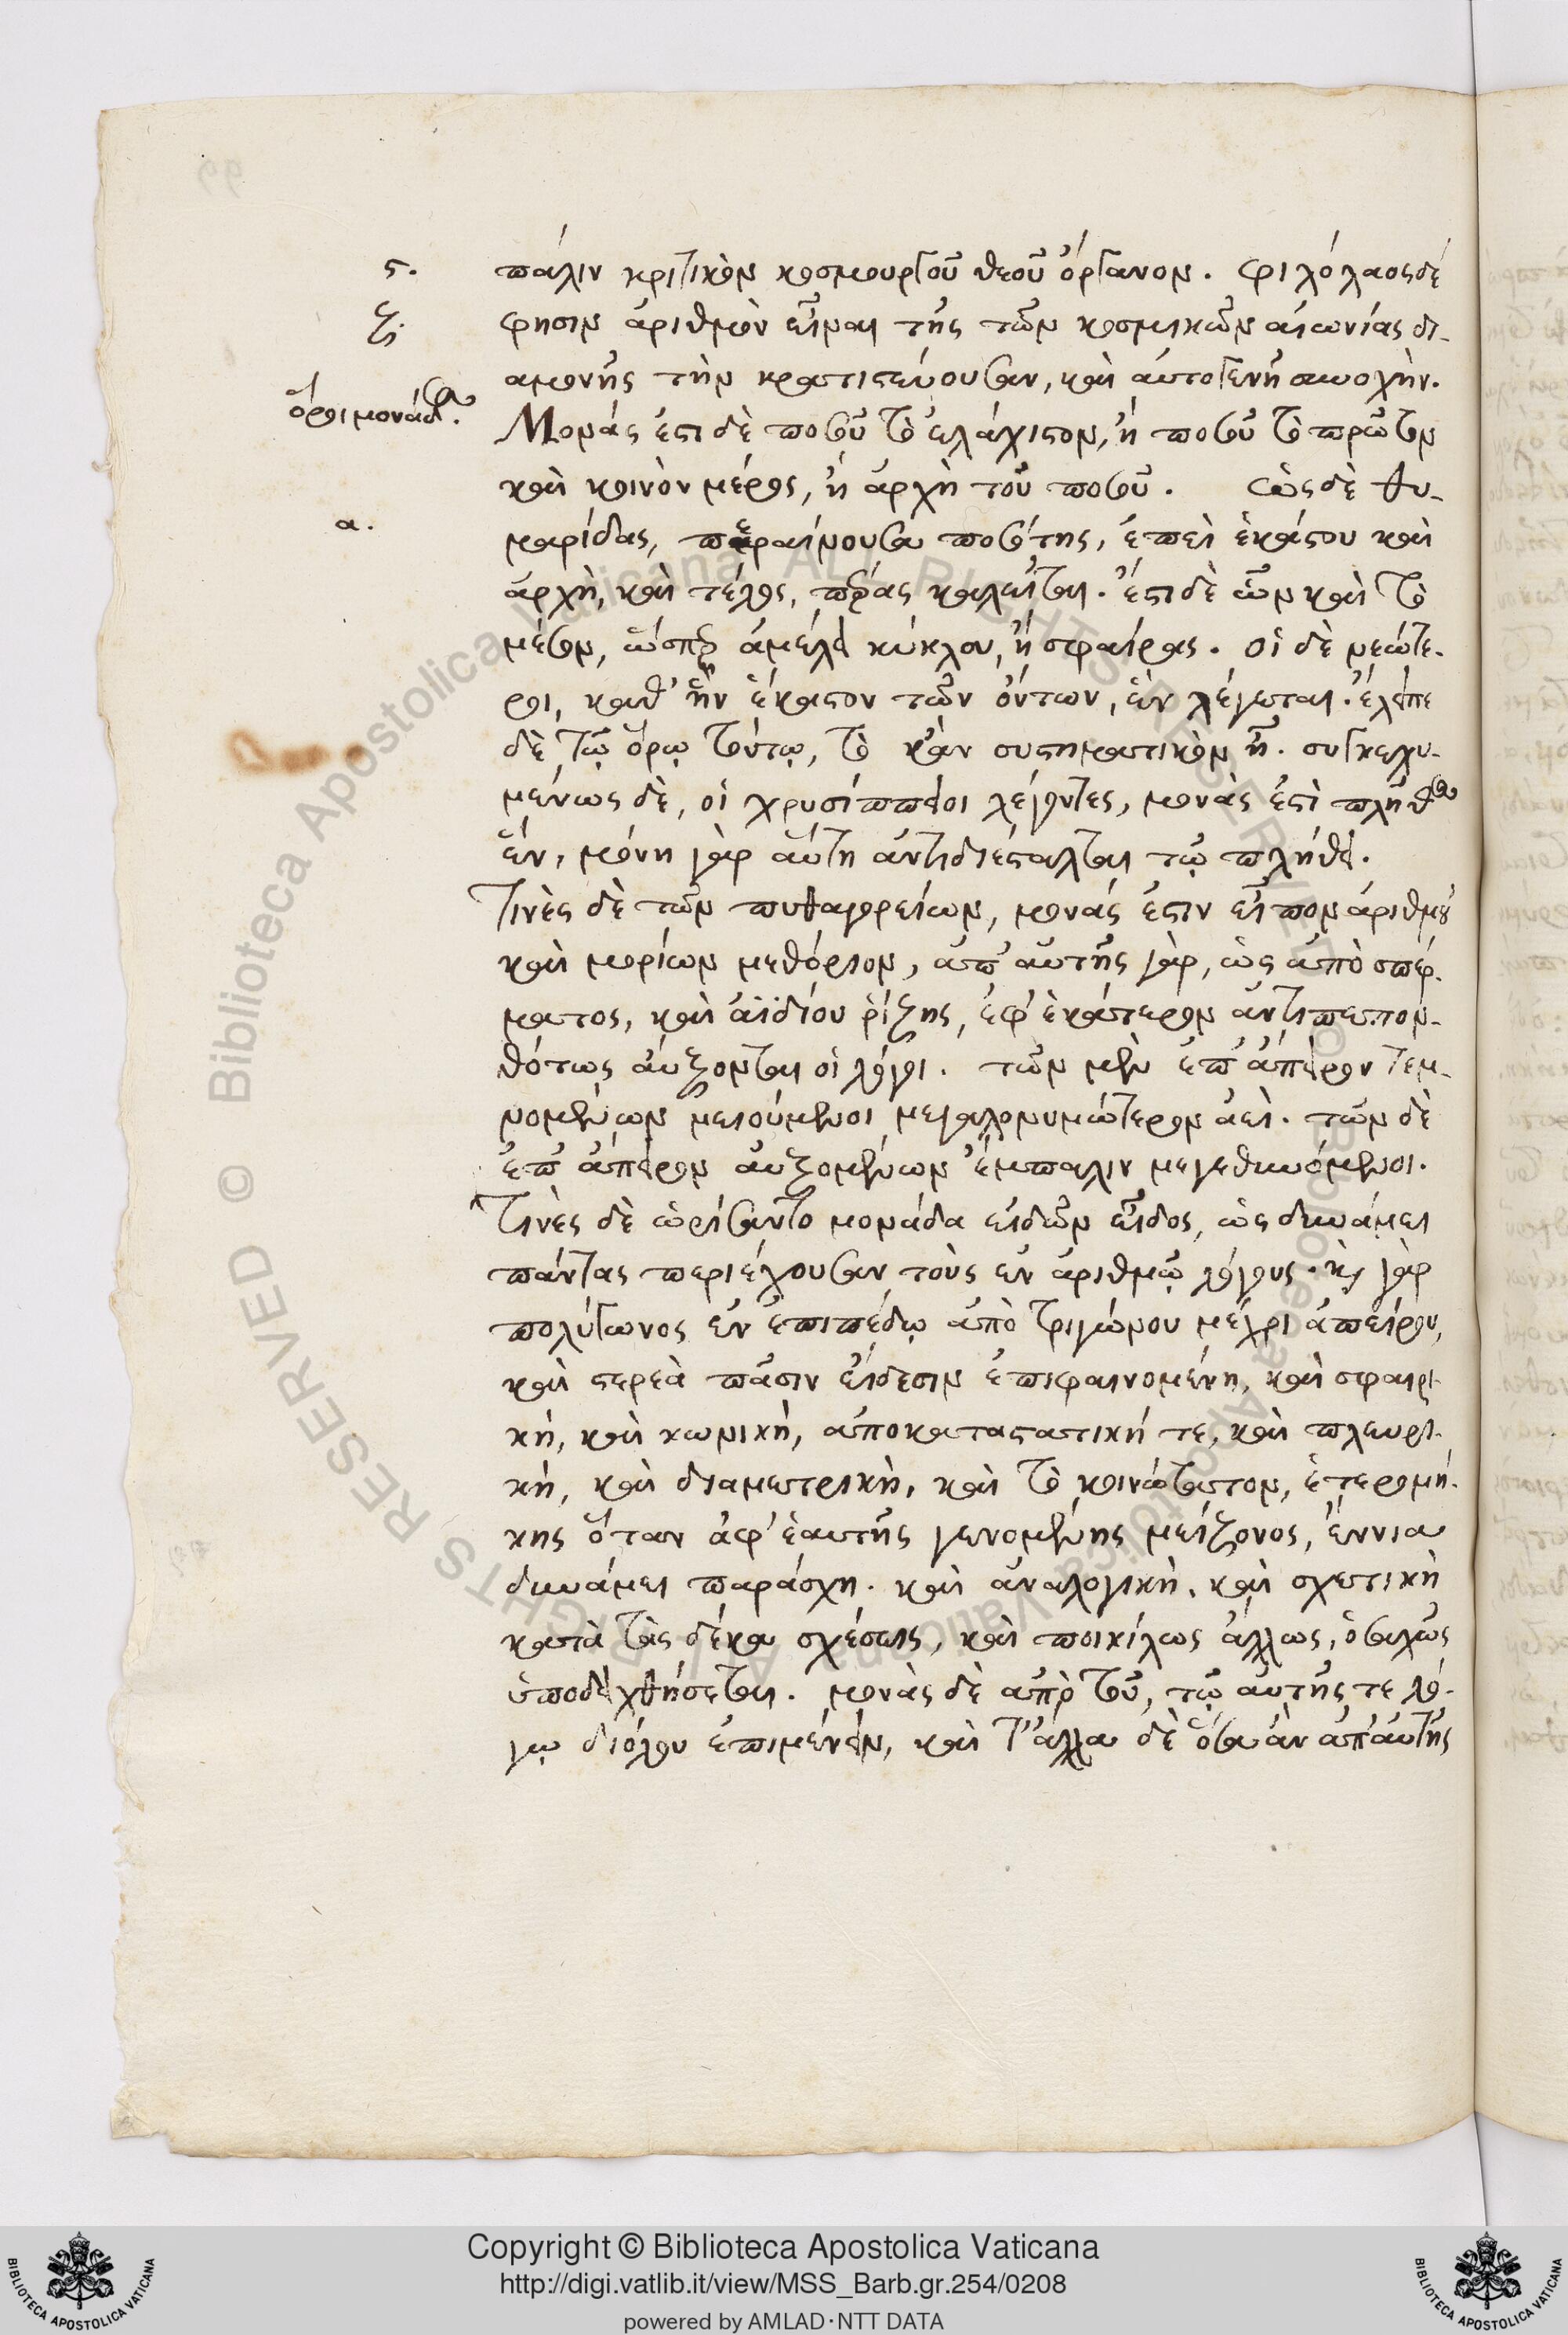 ϛ. πάλιν κριτικὸν κοσμουργοῦ θεοῦ ὄργανον. φιλόλαος δέ
ζ. φησιν ἀριθμὸν εἶναι τῆς τῶν κοσμικῶν αἰωνίας δι-
αμονῆς τὴν κρατιστεύουσαν, καὶ αὐτογενῆ συνοχὴν.
ὅροι μονάδος. Μονάς ἐστι δὲ ποσοῦ τὸ ἐλάχιστον, ἢ ποσοῦ τὸ πρῶτον
καὶ κοινὸν μέρος, ἢ ἀρχὴ τοῦ ποσοῦ. ὡς δὲ θυ-
α. μαρίδας, περαίνουσα ποσότης, ἐπεὶ ἑκάστου καὶ
ἀρχὴ, καὶ τέλος, πέρας καλεῖται. ἔστι δὲ ὧν καὶ τὸ
μέσον, ὥσπερ ἀμέλει κύκλου, ἢ σφαίρας. οἱ δὲ νεώτε-
ροι, καθ' ἣν ἕκαστον τῶν ὄντων, ἓν λέγεται. ἔλειπε
δὲ τῷ ὅρῳ τούτῳ, τὸ κἂν συστηματικὸν ᾖ. συγκεχυ-
μένως δὲ, οἱ χρυσίππειοι λέγοντες, μονὰς ἐστὶ πλῆθος
ἕν, μόνη γὰρ αὕτη ἀντιδιέσταλται τῷ πλήθει.
Τινὲς δὲ τῶν πυθαγορείων, μονάς ἐστιν εἶπον ἀριθμοῦ
καὶ μορίων μεθόριον, ἀπ' αὐτῆς γὰρ, ὡς ἀπὸ σπέρ-
ματος, καὶ ἀϊδίου ῥίζης, ἐφ' ἑκάτερον ἀντιπεπον-
θότως αὔξονται οἱ λόγοι. τῶν μὲν ἐπ' ἄπειρον τεμ-
νομένων μειούμενοι μεγαλονυμώτερον ἀεὶ. τῶν δὲ
ἐπ' ἄπειρον αὐξομένων ἔμπαλιν μεγεθυνόμενοι.
Τινὲς δὲ ὡρίσαντο μονάδα εἰδῶν εἶδος, ὡς δυνάμει
πάντας περιέχουσαν τοὺς ἐν ἀριθμῷ λόγους. καὶ γὰρ
πολύγωνος ἐν ἐπιπέδῳ ἀπὸ τριγώνου μέχρι ἀπείρου,
καὶ στερεὰ πᾶσιν εἴδεσιν ἐπιφαινομένη, καὶ σφαιρι-
κή, καὶ κωνικὴ, ἀποκαταστατική τε, καὶ πλευρι-
κή, καὶ διαμετρικὴ, καὶ τὸ κοινώτατον, ἑτερομή-
κης ὅταν ἀφ' ἑαυτῆς γενομένης μείζονος, ἔννια
δυνάμει παράσχη. καὶ ἀναλογικὴ, καὶ σχετικὴ
κατὰ τὰς δέκα σχέσεις, καὶ ποικίλως ἄλλως,
ὑποδειχθήσεται. μονὰς δὲ ἀπὸ τοῦ, τῷ αὐτῆς τε λό-
γῳ διόλου ἐπιμένειν, καὶ τ' ἄλλα δὲ ὅσα ἂν ἀπ' αὐτῆς
Copyright © Biblioteca Apostolica Vaticana
http://digi.vatlib.it/view/MSS_Barb.gr.254/0208
powered by AMLAD·NTT DATA
BIBLIOTECA APOSTOLICA VATICANA
BIBLIOTECA APOSTOLICA VATICANA